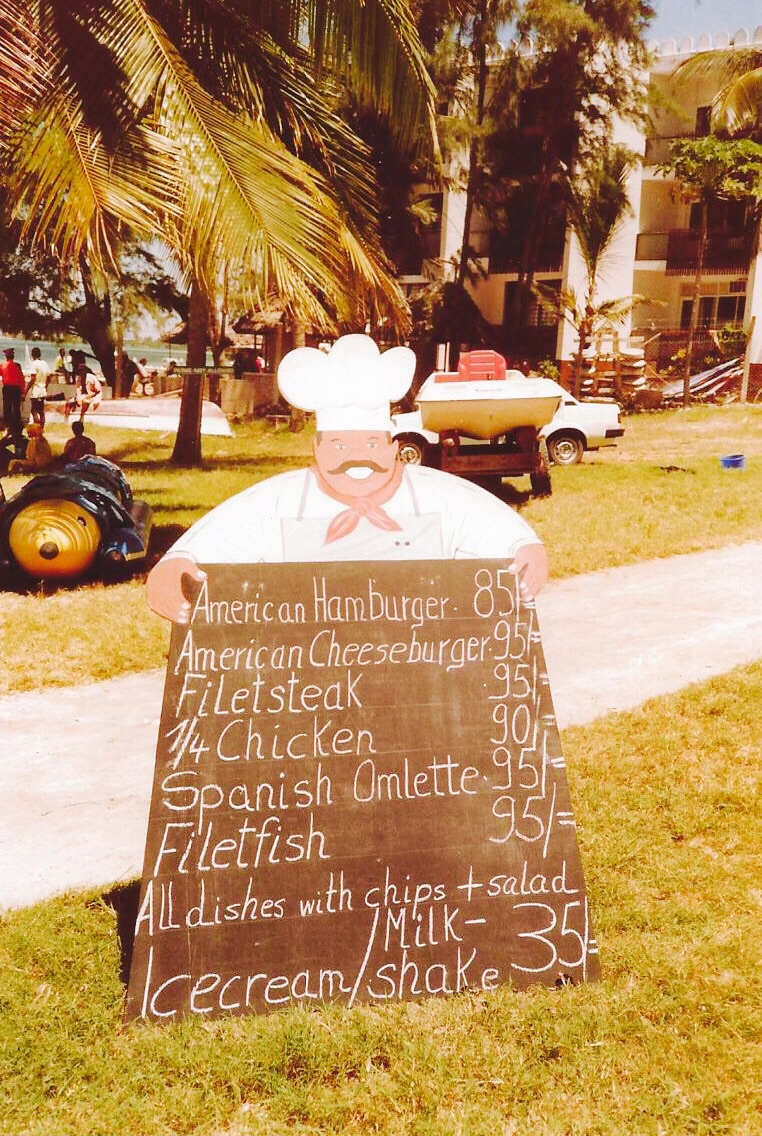 American Hamburger. 85/=
American Cheeseburger. 95/=
Filetsteak 95/=
1/4 Chicken 90/=
Spanish Omlette. 95/=
Filetfish 95/=
All dishes with chips + salad
Icecream/Milk-shake 35/=